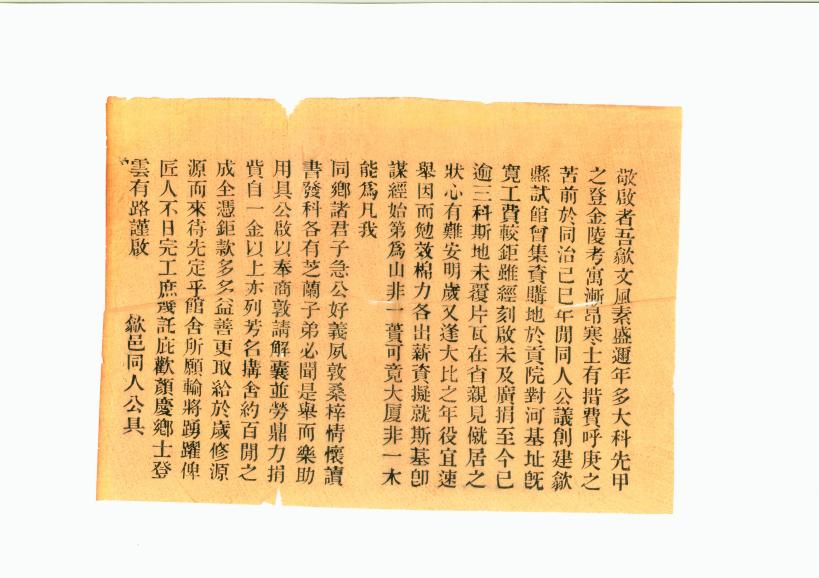 敬啟者吾歙文風素盛邇年多大科先甲
之登金陵考寓漸昂寒士有措費呼庚之
苦前於同治己巳年間同人公議創建歙
縣試館曾集資購地於貢院對河基址旣
寬工費較鉅雖經刻啟未及廣捐至今已
逾三科斯地未覆片瓦在省親見僦居之
狀心有難安明歲又逢大比之年役宜速
舉因而勉效棉力各出薪資擬就斯基卽
謀經始第爲山非一蕢可竟大厦非一木
能爲凡我
同鄉諸君子急公好義夙敦桑梓情懷讀
書發科各有芝蘭子弟必聞是舉而樂助
用具公啟以奉商敦請解囊並勞鼎力捐
貲自一金以上亦列芳名搆舍約百間之
成全憑鉅款多多益善更取給於歲修源
源而來待先定乎館舍所願輸將踴躍俾
匠人不日完工庶幾託庇歡顏慶鄉士登
雲有路謹啟
歙邑同人公具